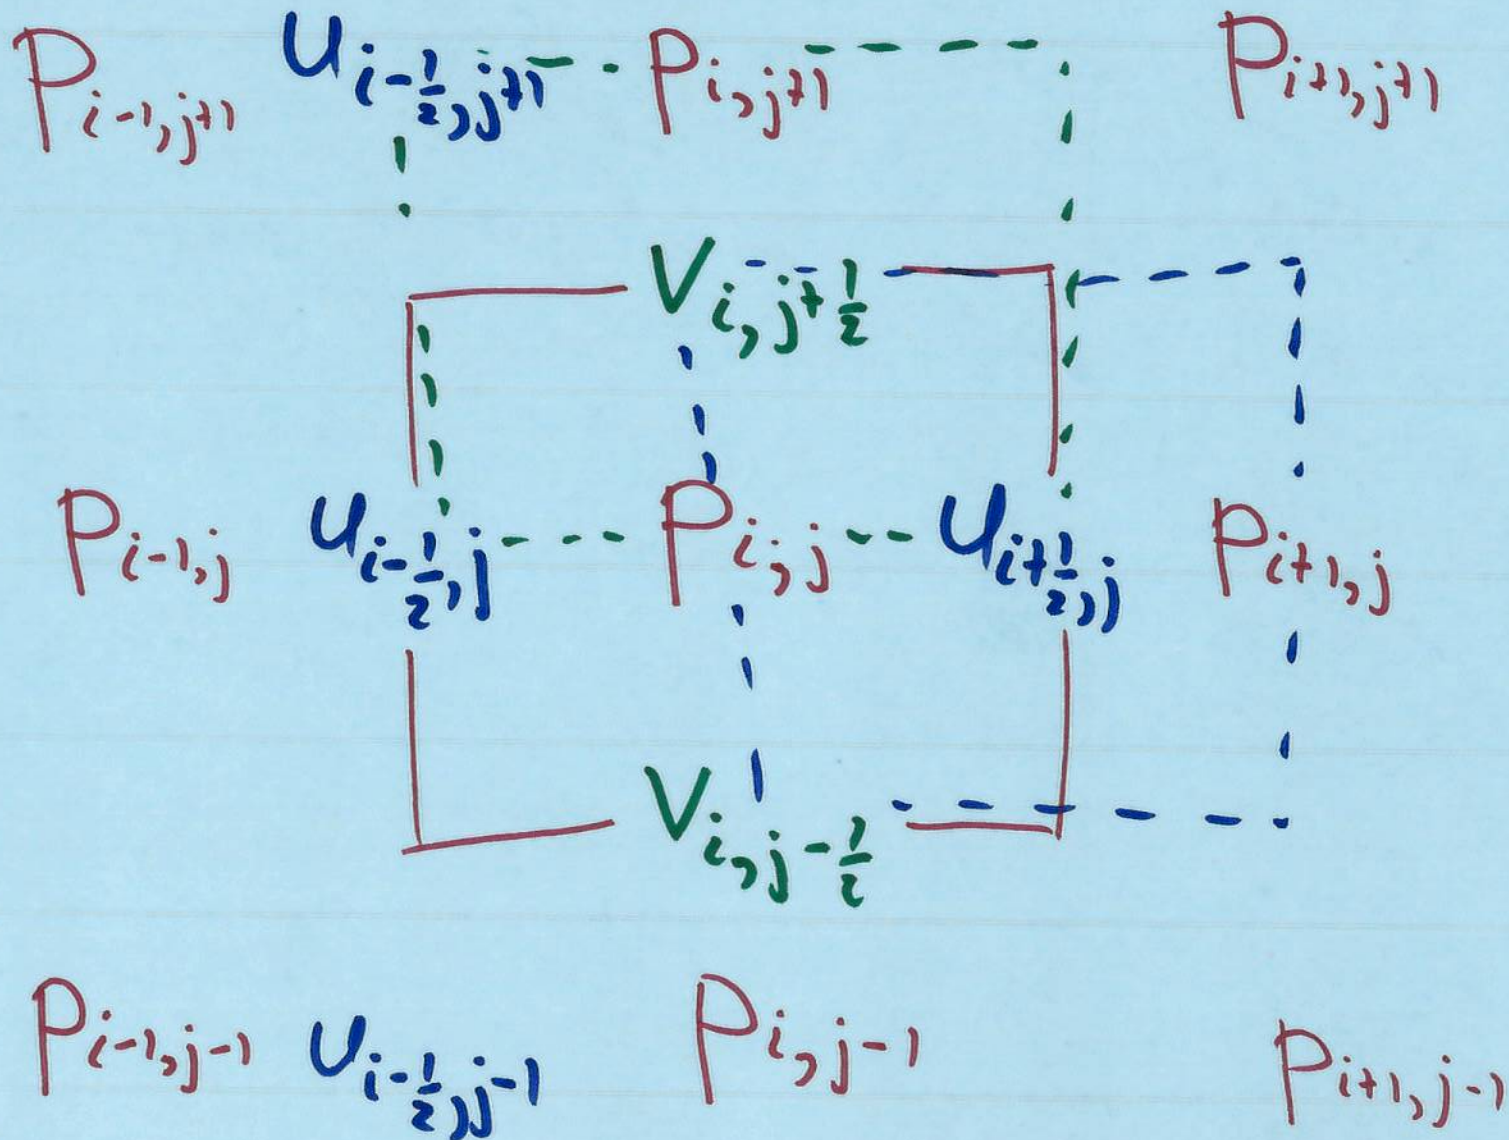 P_{i-1,j+1} u_{i-\frac{1}{2},j+1} P_{i,j+1} P_{i+1,j+1}
V_{i,j+\frac{1}{2}}
P_{i-1,j} u_{i-\frac{1}{2},j} P_{i,j} u_{i+\frac{1}{2},j} P_{i+1,j}
V_{i,j-\frac{1}{2}}
P_{i-1,j-1} u_{i-\frac{1}{2},j-1} P_{i,j-1} P_{i+1,j-1}